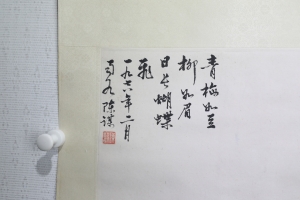 青梅如豆
柳如眉
日长蝴蝶
飞
一九七六年二月